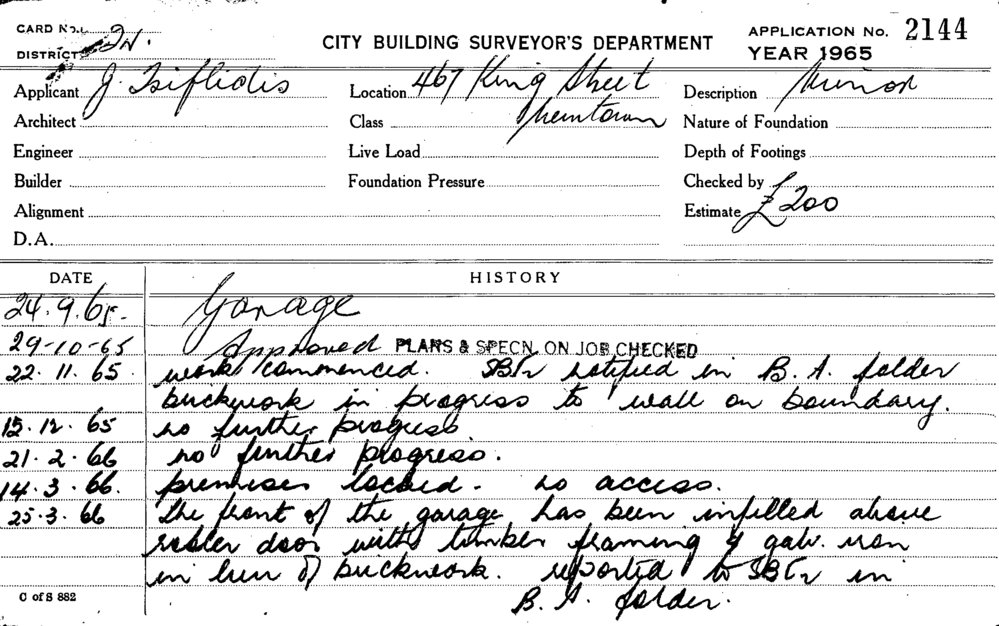 CARD No.
DISTRICT 2N.
CITY BUILDING SURVEYOR'S DEPARTMENT
APPLICATION No. 2144
YEAR 1965
Applicant J. Tsiflidis
Location 467 King Street
Description Minor
Architect
Class Newtown
Nature of Foundation
Engineer
Live Load
Depth of Footings
Builder
Foundation Pressure
Checked by
Alignment
Estimate £200
D.A.
DATE HISTORY
24.9.65- Garage
29-10-65 Approved PLANS & SPECN. ON JOB CHECKED
22.11.65. work commenced. notified in B.A. folder
brickwork in progress to wall on boundary.
15.12.65 no further progress
21.2.66 no further progress.
14.3.66. premises locked. no access.
25.3.66 the front of the garage has been infilled above
roller door with timber framing & galv. iron
in lieu of brickwork. reported to in
B.A. folder.
C of S 882